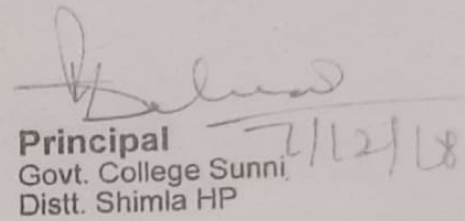 Principal 7/12/18
Govt. College Sunni
Distt. Shimla HP